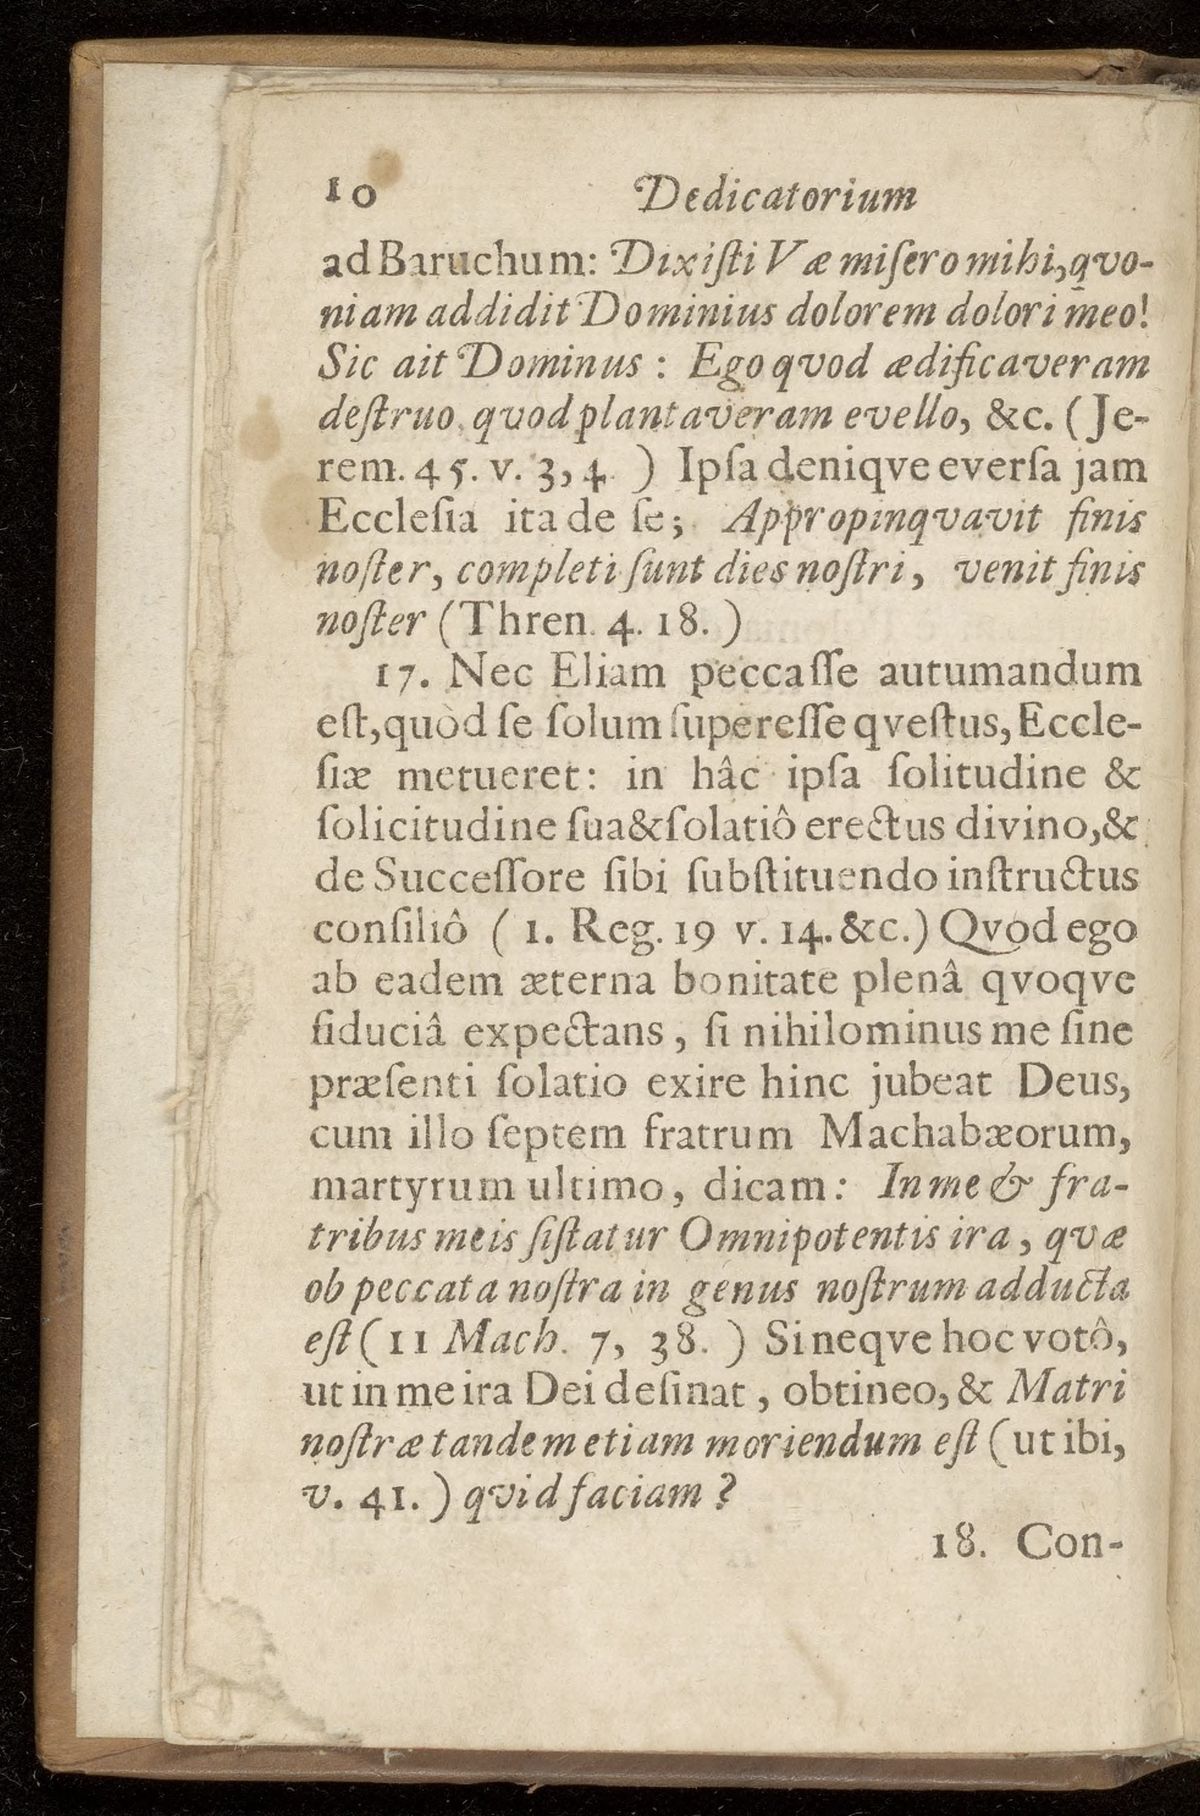 10 Dedicatorium
ad Baruchum: Dixiſti Væ miſero mihi, qvo-
niam addidit Dominius dolorem dolori meo!
Sic ait Dominus: Ego qvod ædificaveram
deſtruo, qvod plantaveram evello, &c. (Je-
rem. 45. v. 3, 4. ) Ipſa deniqve everſa jam
Eccleſia ita de ſe; Appropinqvavit finis
noſter, completi ſunt dies noſtri, venit finis
noſter (Thren. 4. 18. )
17. Nec Eliam peccaſſe autumandum
eſt, quòd ſe ſolum ſupereſſe qveſtus, Eccle-
ſiæ metueret: in hâc ipſa ſolitudine &
ſolicitudine ſua & ſolatiô erectus divino, &
de Succeſſore ſibi ſubſtituendo inſtructus
conſiliô ( 1. Reg. 19 v. 14. &c.) Qvod ego
ab eadem æterna bonitate plenâ qvoqve
fiduciâ expectans, ſi nihilominus me ſine
præſenti ſolatio exire hinc jubeat Deus,
cum illo ſeptem fratrum Machabæorum,
martyrum ultimo, dicam: In me & fra-
tribus meis ſiſtatur Omnipotentis ira, qvæ
ob peccata noſtra in genus noſtrum adducta
eſt (11 Mach. 7, 38. ) Sineqve hoc votô,
ut in me ira Dei deſinat, obtineo, & Matri
noſtræ tandem etiam moriendum eſt (ut ibi,
v. 41. ) qvid faciam?
18. Con-